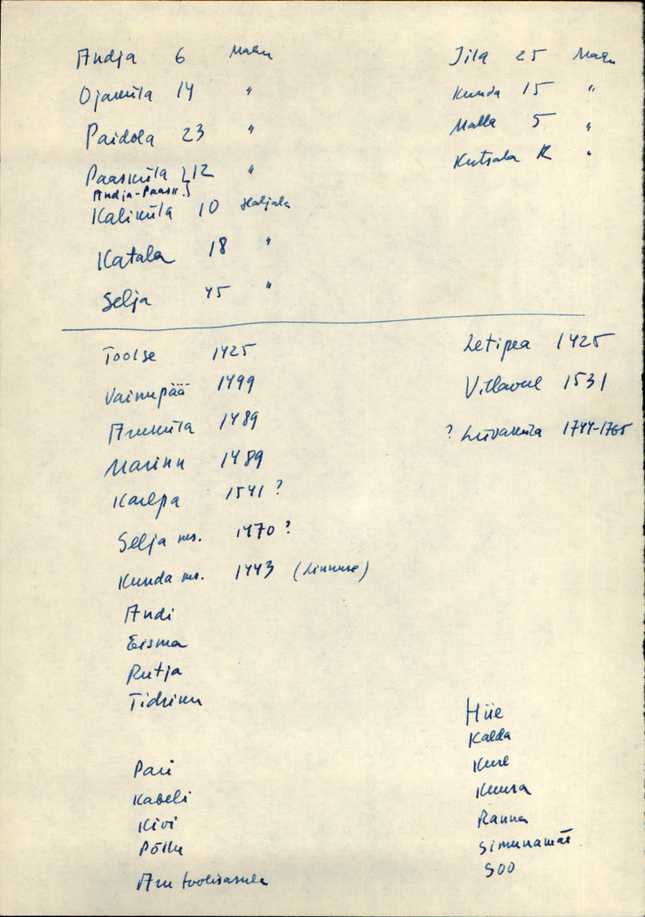 Andja 6 Mahu
Ojaküla 14 "
Paidola 23 "
Paasküla 12 "
Andja-Paask.
Kaliküla 10 Haljala
Katala 18 "
Selja 45 "
Jila 25 Mahu
Kunda 15 "
Malla 5 "
Kutsala K "
Toolse 1425
Vainupää 1499
Aruküla 1489
Marinu 1489
Karepa 1541 ?
Selja ms. 1470 ?
Kunda ms. 1443 (Linnuse)
Andi
Eisma
Rutja
Tidriku
Letipea 1425
Villavere 1531
? Liivaküla 1744-1765
Pari
Kabeli
Kivi
Põllu
Hiie
Kalda
Kure
Kuura
Ranna
Simunamäe
Soo